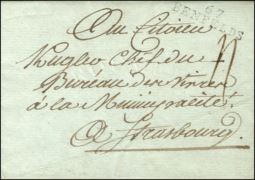 67
BENFELDS
Au Citoien
Kugler Chef du
Bureau des vivres
à la Municipalité
a Strasbourg